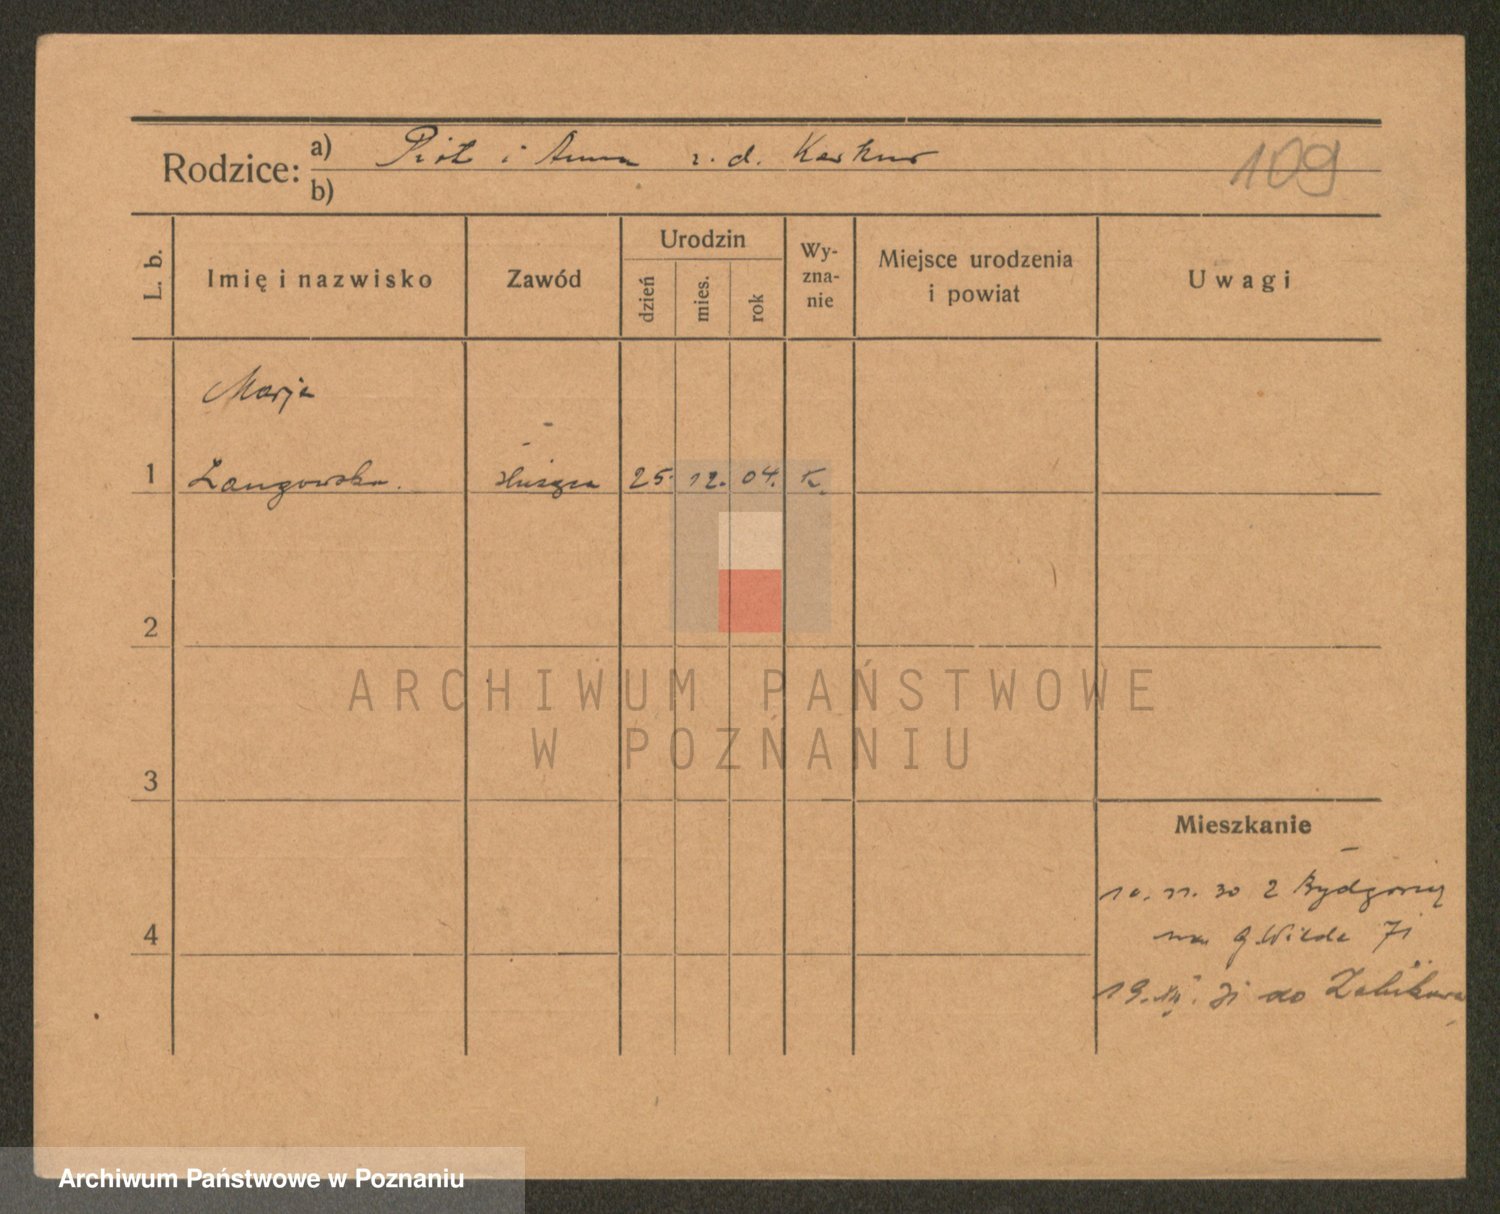 Rodzice: a) Piotr i Anna z. d.
109
b)
L. b.
Imię i nazwisko
Zawód
Urodzin
dzień
mies.
rok
Wy-
zna-
nie
Miejsce urodzenia
i powiat
Uwagi
Marja
1 Langowska. służąca 25. 12. 04. K.
2
ARCHIWUM PAŃSTWOWE
W POZNANIU
3
Mieszkanie
10. 11. 30 z Bydgoszczy
na G. Wilda 71
4
19. XII. 31 do Żabikowa
Archiwum Państwowe w Poznaniu